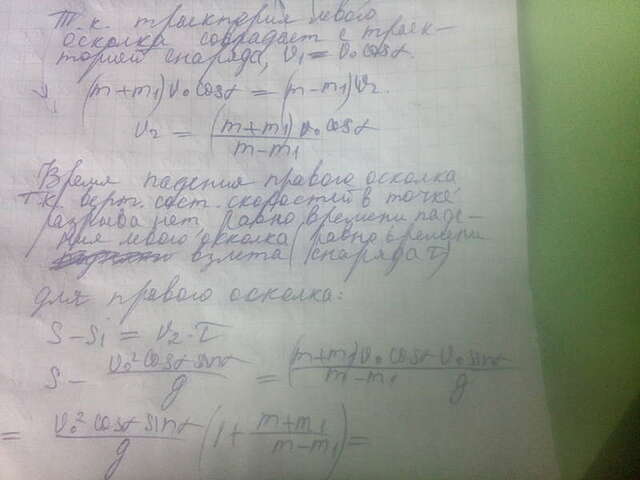 Т.к. траектория левого
осколка совпадает с траек-
торией снаряда, v₁ = v₀cosα.
(m+m₁)v₀cosα = (m-m₁)v₂
v₂ = (m+m₁)v₀cosα / m-m₁
Время падения правого осколка
Т.к. верт. сост. скоростей в точке
разрыва нет равно времени паде-
ния левого осколка (равно времени
взлета снаряда τ)
для правого осколка:
S - S₁ = v₂·τ
S - v₀²cosα sinα / g = (m+m₁)v₀cosα v₀sinα / m-m₁ g
= v₀²cosα sinα / g (1 + m+m₁ / m-m₁) =